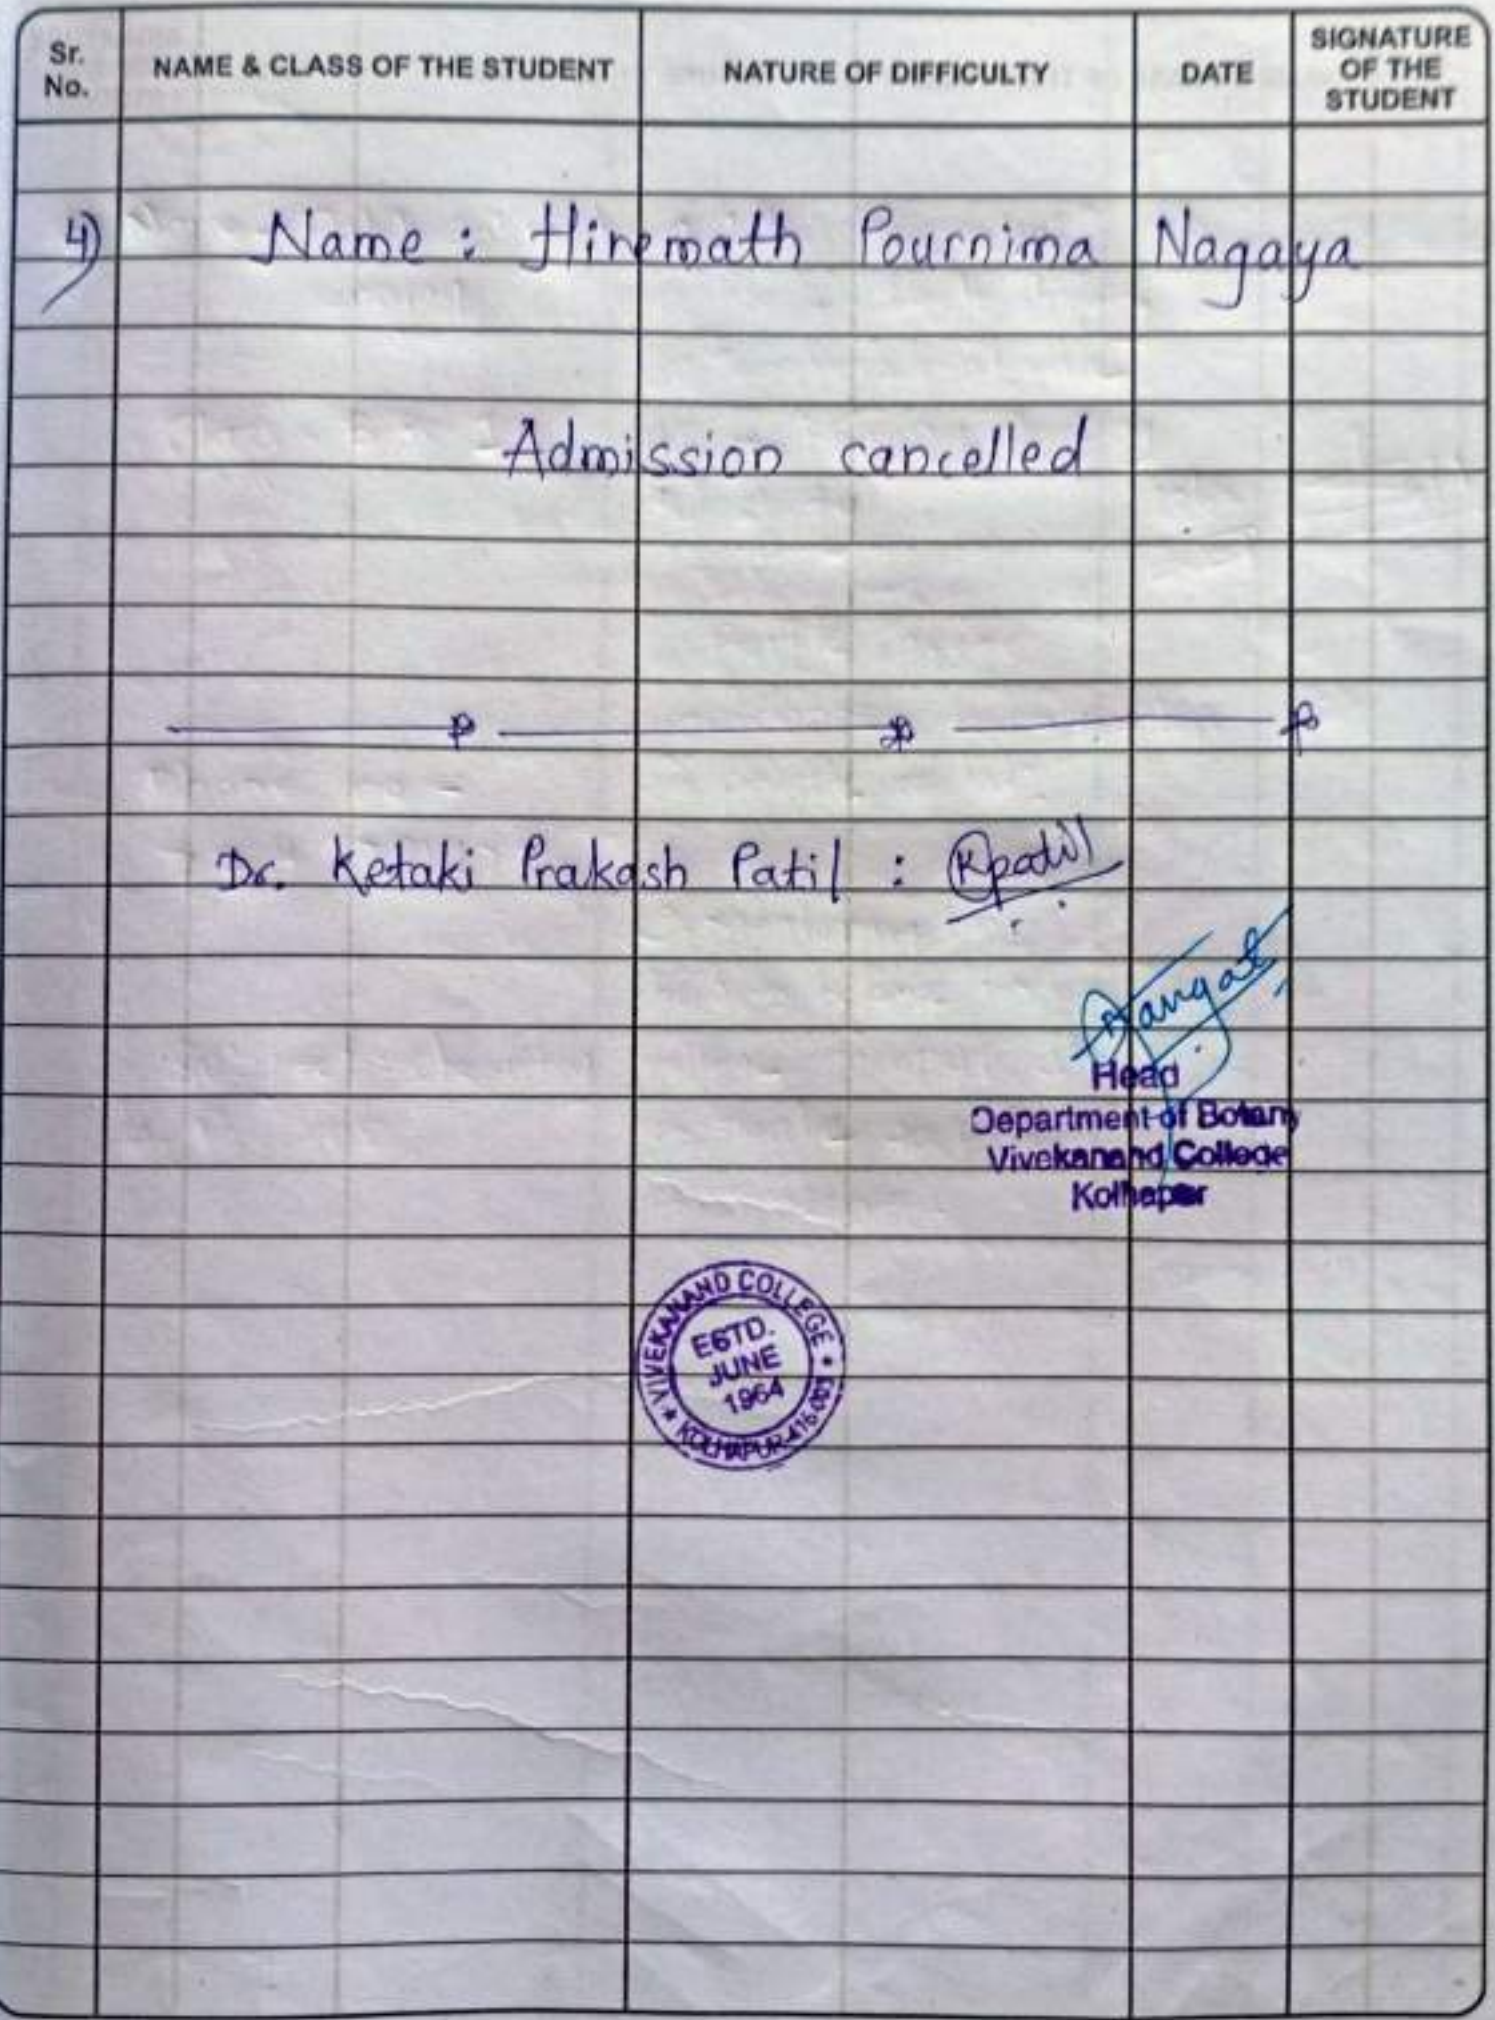 Sr. No.
NAME & CLASS OF THE STUDENT
NATURE OF DIFFICULTY
DATE
SIGNATURE OF THE STUDENT
4) Name : Hiremath Pournima Nagaya
Admission cancelled
Dr. Ketaki Prakash Patil : Kpatil
Head
Department of Botany
Vivekanand College
Kolhapur
VIVEKANAND COLLEGE
ESTD.
JUNE
1964
KOLHAPUR-416 003